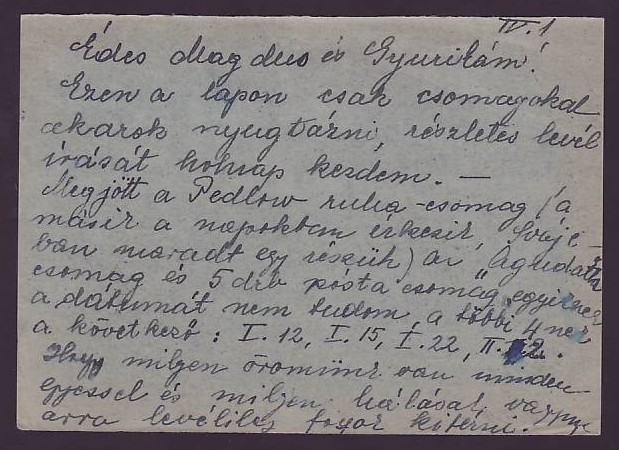 IV.1
Édes Magdus és Gyurikám!
Ezen a lapon csak csomagokat
akarok nyugtázni, részletes levél
írását holnap kezdem. —
Megjött a Pedlow ruha-csomag (a
másik a napokban érkezik, Svájc-
ban maradt egy részük) az Agudath
csomag és 5 drb posta csomag, egyiknek
a dátumát nem tudom, a többi 4 nek
a következő: I.12, I.15, I.22, II.
Hogy milyen örömünk van minden
egyessel és milyen hálásak vagyunk
arra levélileg fogok kitérni.